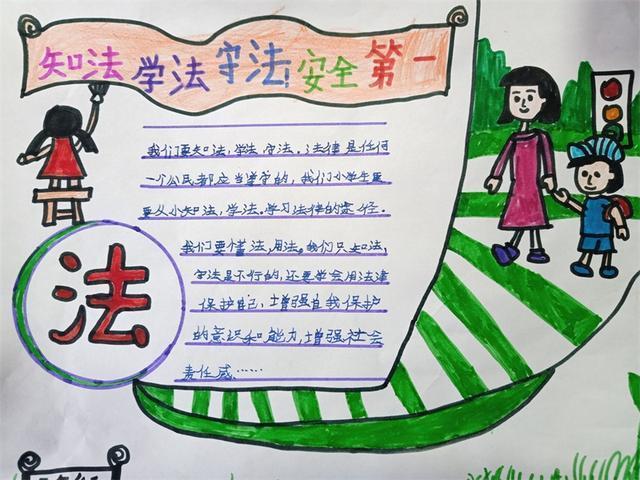 知法 学法 守法 安全 第一
我们要知法,学法,守法。法律是任何
一个公民都应当掌学的,我们小学生更
要从小知法,学法。学习法律的途径。
我们要懂法,用法。我们只知法,
守法是不行的,还要学会用法津
保护自己,增强自我保护
的意识和能力,增强社会
责任感……
法